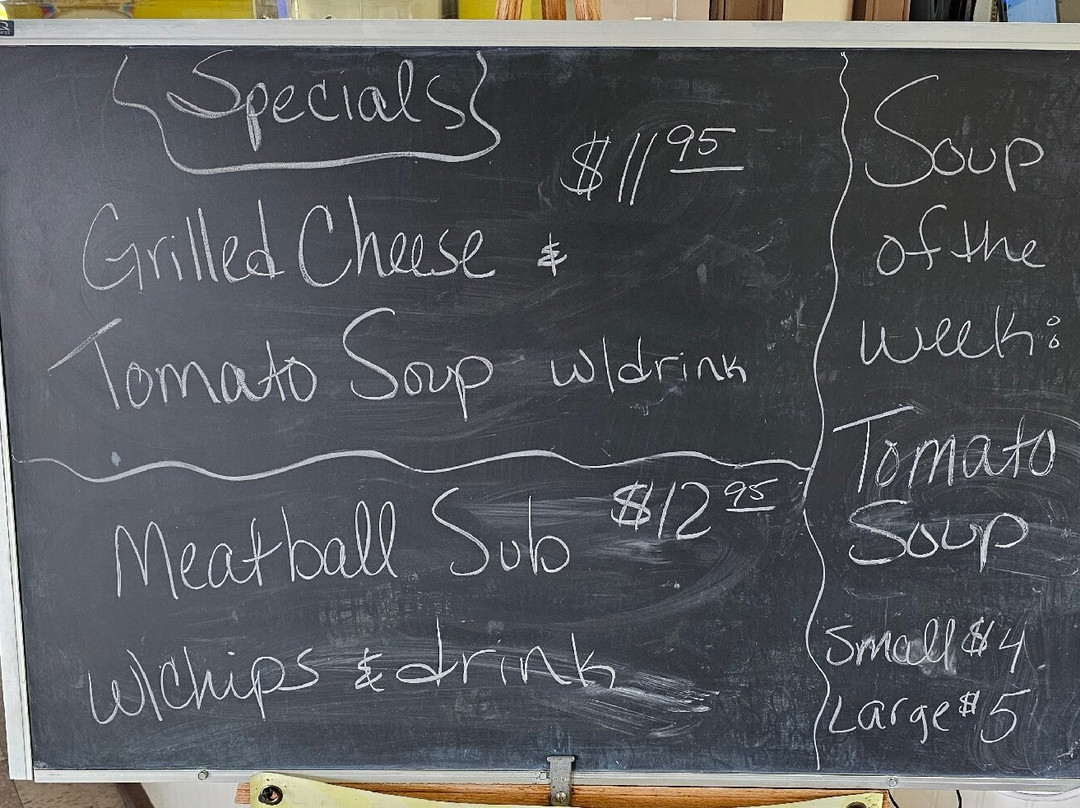 Specials
$11 95
Grilled Cheese &
Tomato Soup w/drink
$12 95
Meatball Sub
w/chips & drink
Soup
of the
week:
Tomato
Soup
Small $4
Large $5